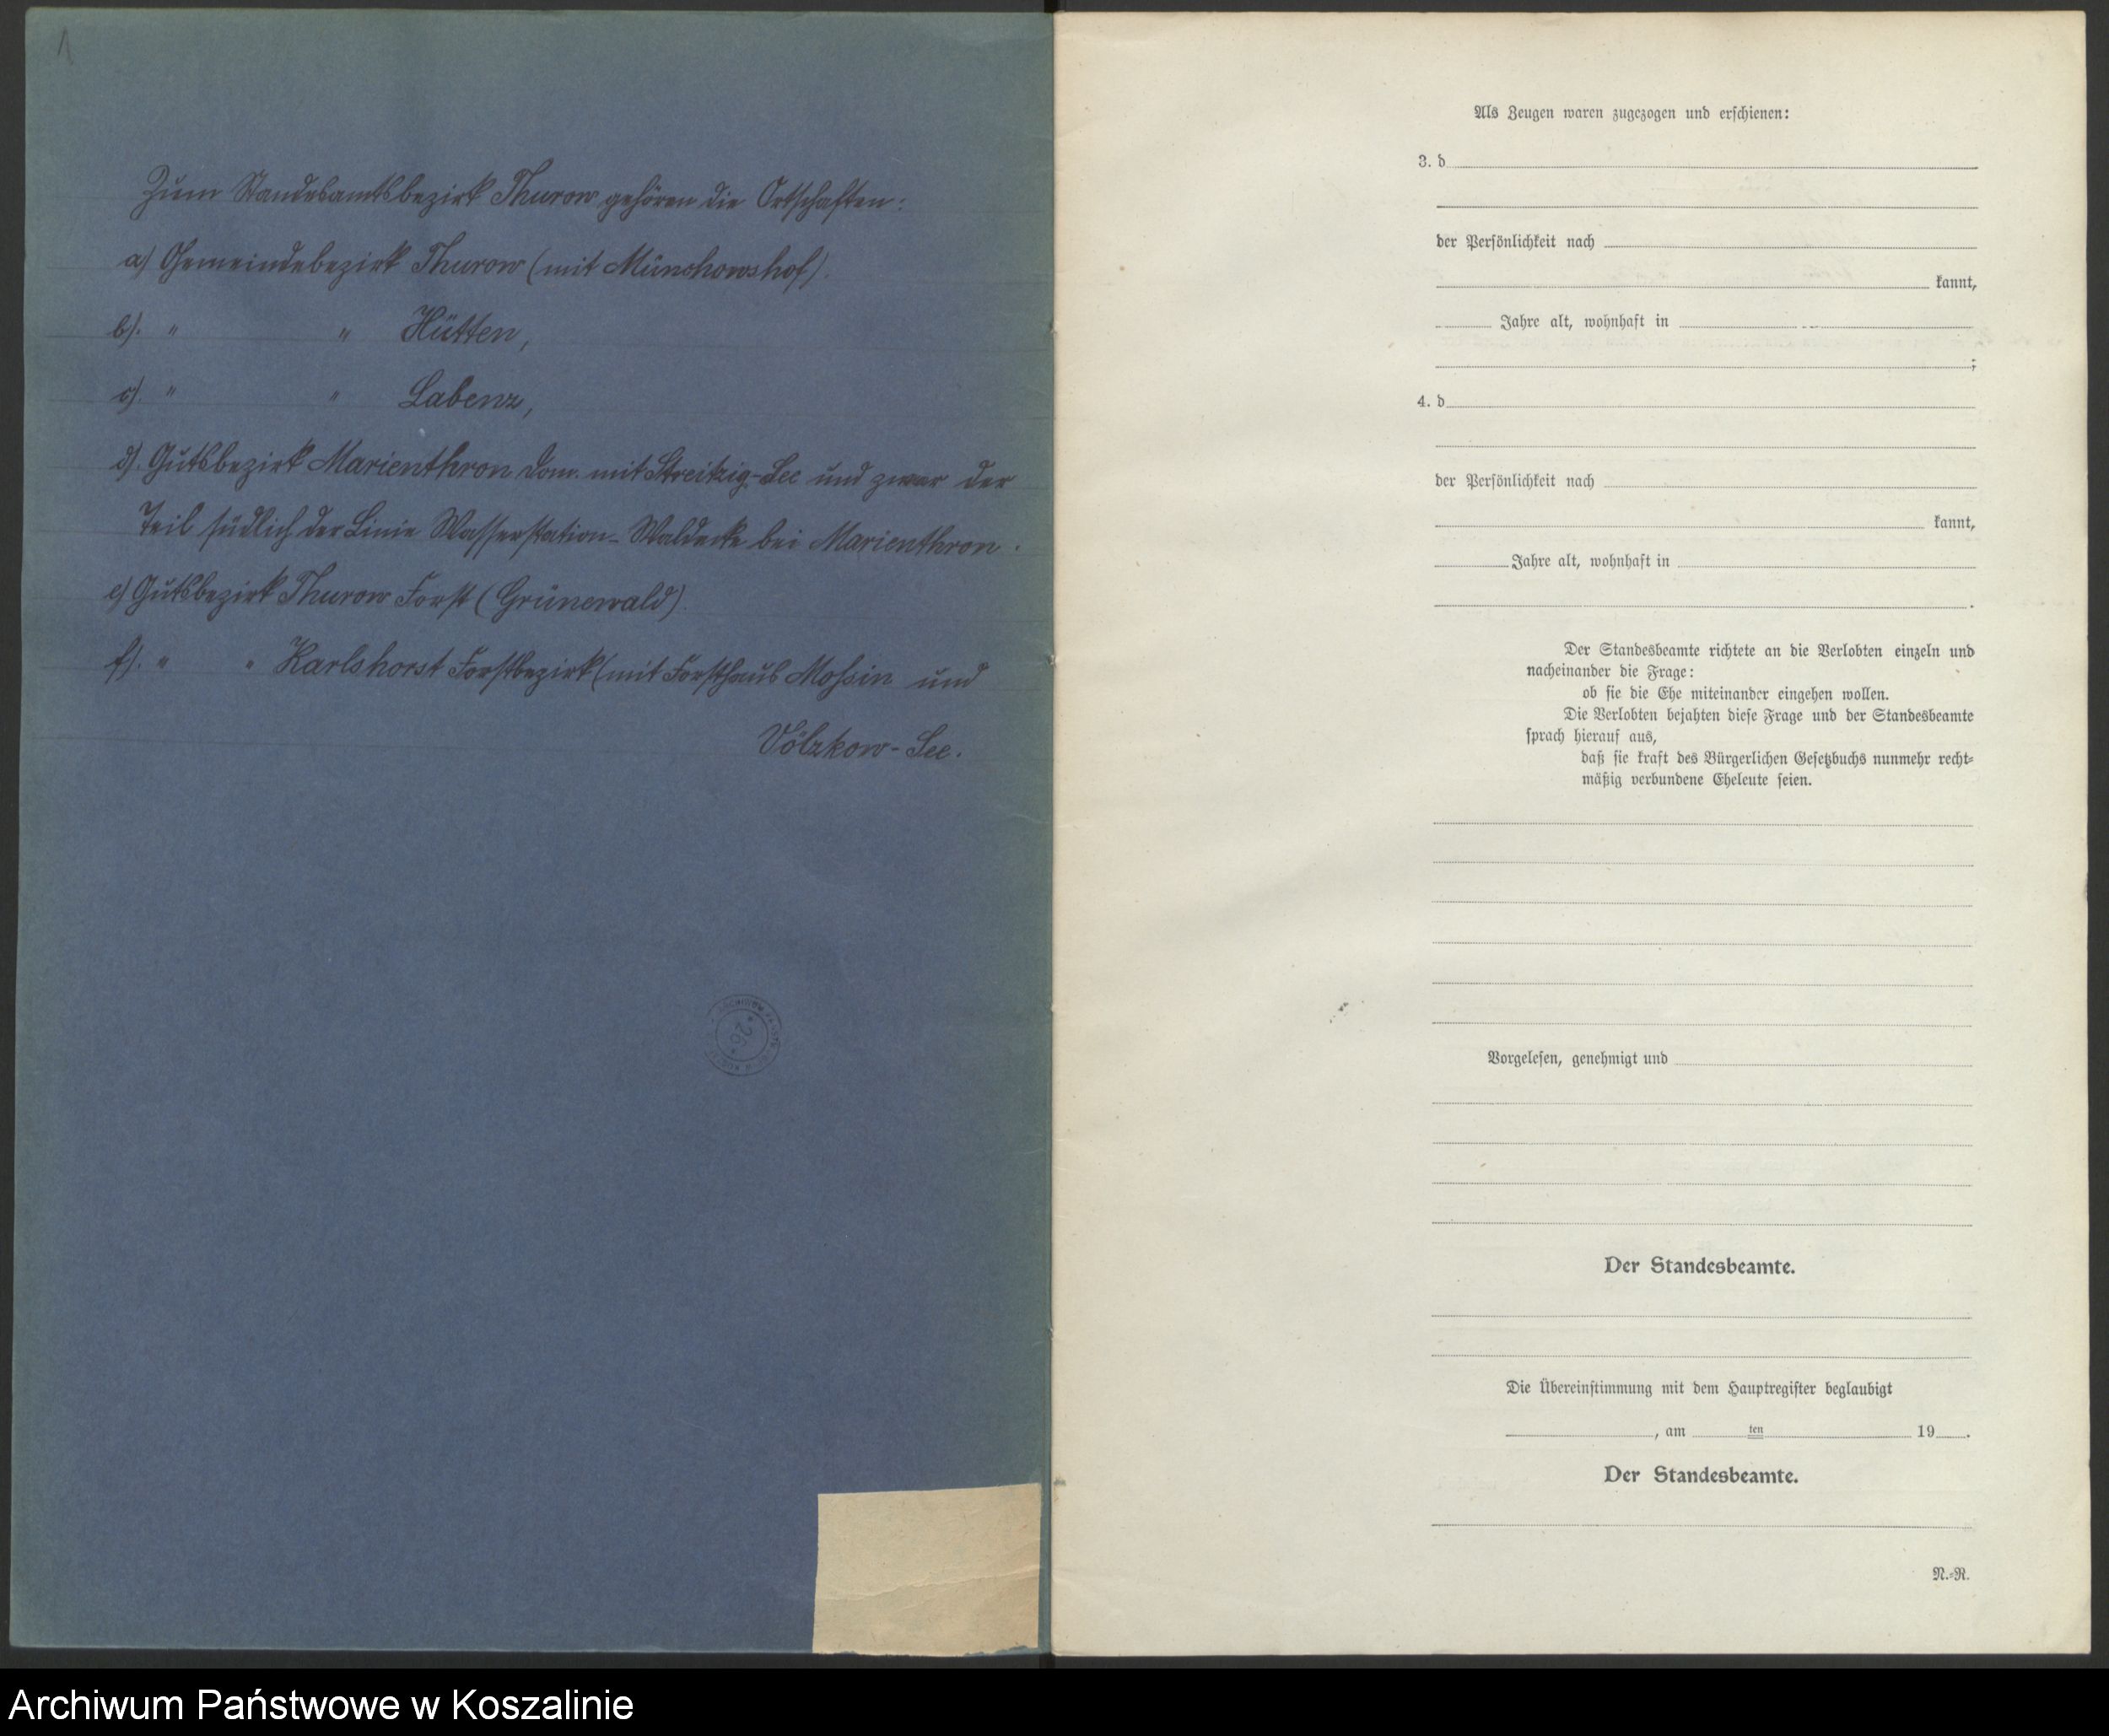 1
Zum Standesamtsbezirk Thurow gehören die Ortschaften:
a) Gemeindebezirk Thurow (mit Münchowshof).
b). " " Hütten,
c). " " Labenz,
d). Gutsbezirk Marienthron Dom. mit Streitzig-See und zwar der
Teil südlich der Linie Wasserstation - Waldecke bei Marienthron.
e) Gutsbezirk Thurow Forst (Grünewald)
f). " " Karlshorst Forstbezirk (mit Forsthaus Mossin und
Völzkow-See.
26
Als Zeugen waren zugezogen und erschienen:
3. d
der Persönlichkeit nach
kannt,
Jahre alt, wohnhaft in
;
4. d
der Persönlichkeit nach
kannt,
Jahre alt, wohnhaft in
.
Der Standesbeamte richtete an die Verlobten einzeln und
nacheinander die Frage:
ob sie die Ehe miteinander eingehen wollen.
Die Verlobten bejahten diese Frage und der Standesbeamte
sprach hierauf aus,
daß sie kraft des Bürgerlichen Gesetzbuchs nunmehr recht-
mäßig verbundene Eheleute seien.
Vorgelesen, genehmigt und
Der Standesbeamte.
Die Übereinstimmung mit dem Hauptregister beglaubigt
, am ten 19 .
Der Standesbeamte.
N.-R.
Archiwum Państwowe w Koszalinie